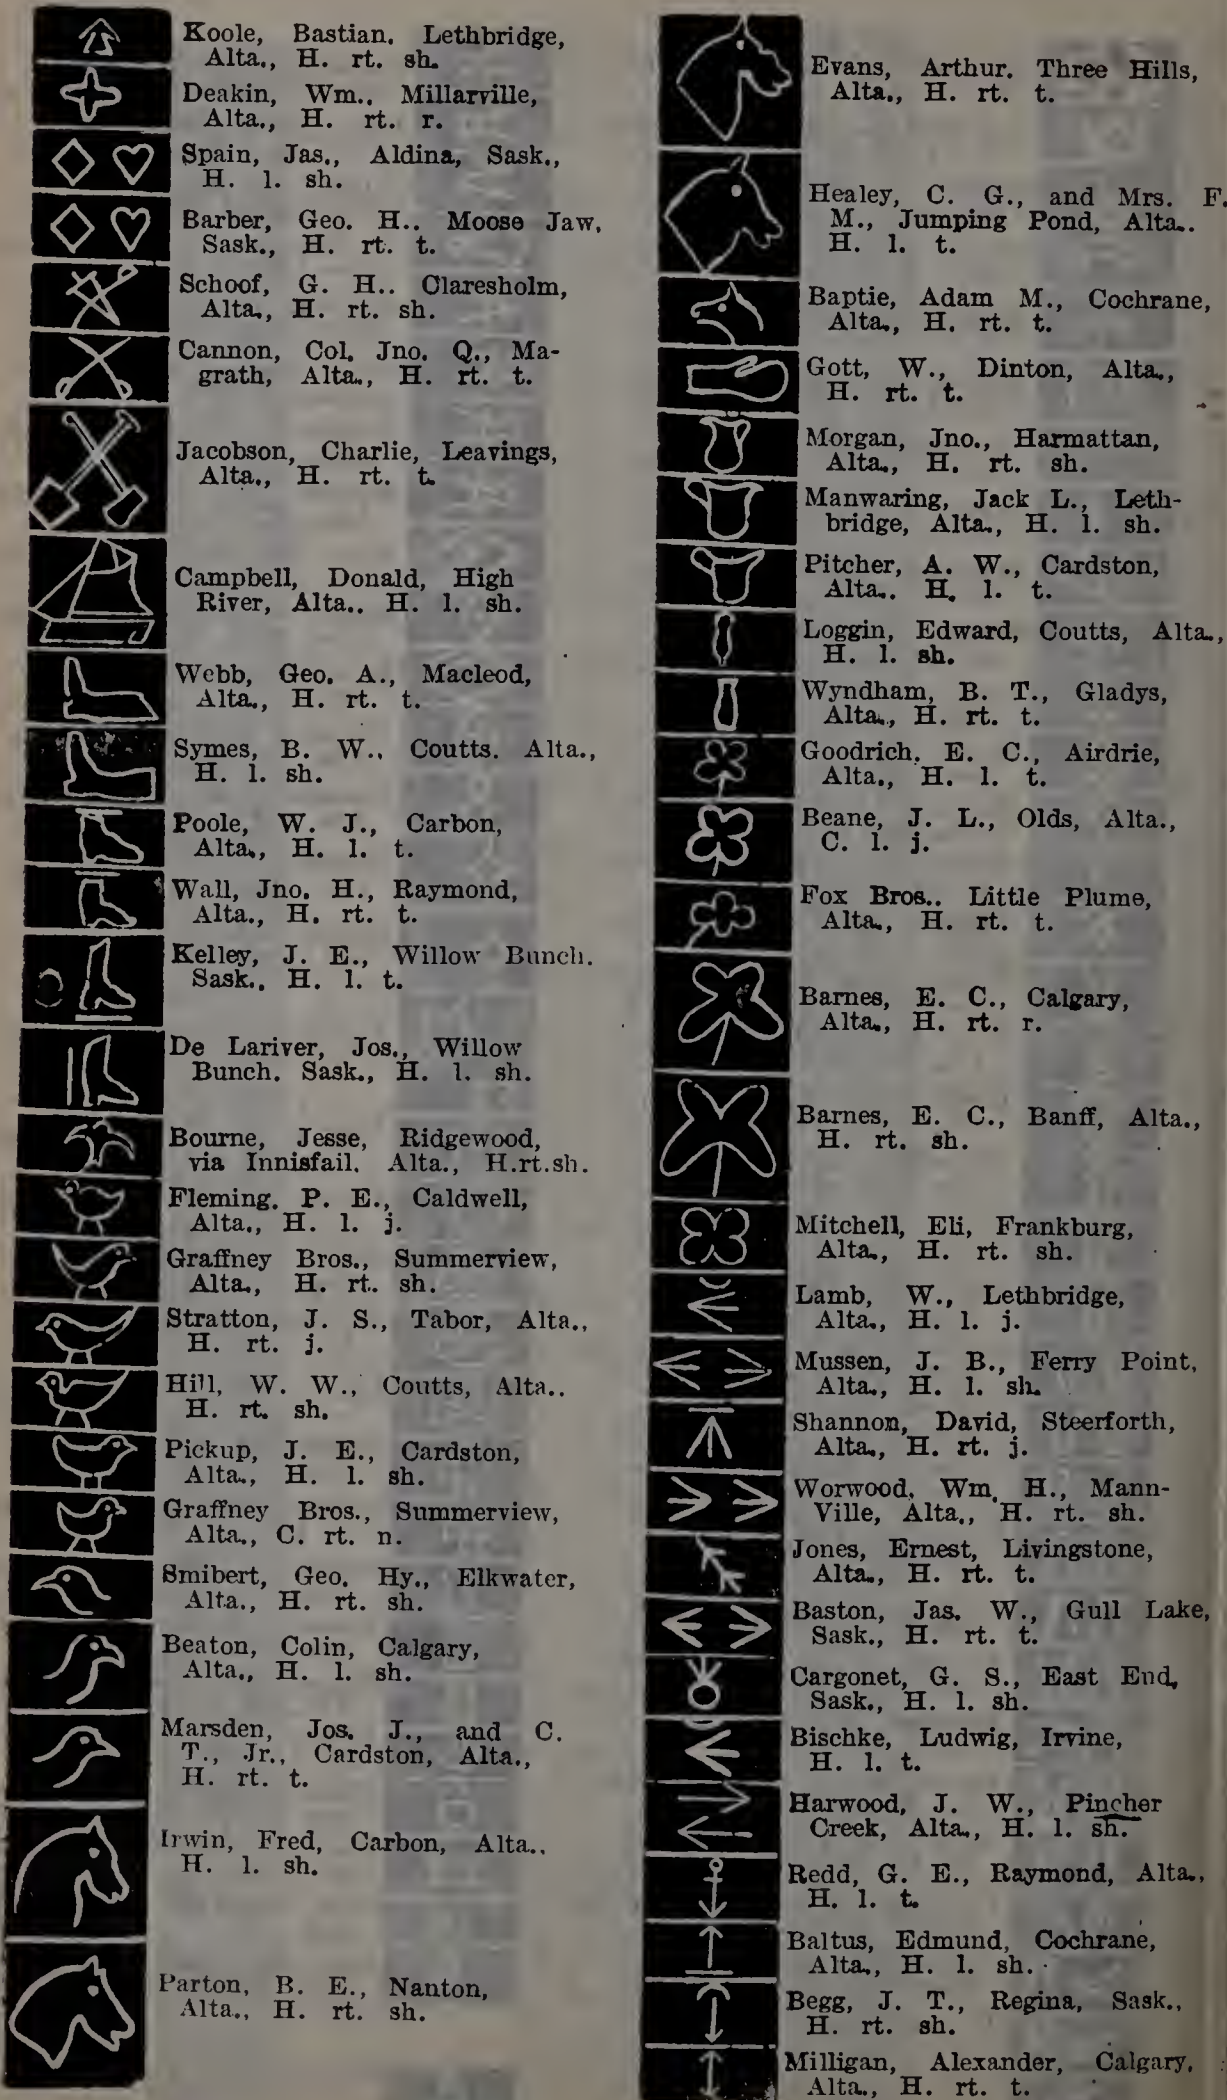 Koole, Bastian. Lethbridge,
Alta., H. rt. sh.
Deakin, Wm.. Millarville,
Alta., H. rt. r.
Spain, Jas., Aldina, Sask.,
H. l. sh.
Barber, Geo. H.. Moose Jaw.
Sask., H. rt. t.
Schoof, G. H.. Claresholm,
Alta., H. rt. sh.
Cannon, Col. Jno. Q., Ma-
grath, Alta., H. rt. t.
Jacobson, Charlie, Leavings,
Alta., H. rt. t.
Campbell, Donald, High
River, Alta.. H. l. sh.
Webb, Geo. A., Macleod,
Alta., H. rt. t.
Symes, B. W., Coutts. Alta.,
H. l. sh.
Poole, W. J., Carbon,
Alta., H. l. t.
Wall, Jno. H., Raymond,
Alta., H. rt. t.
Kelley, J. E., Willow Bunch.
Sask., H. l. t.
De Lariver, Jos., Willow
Bunch. Sask., H. l. sh.
Bourne, Jesse, Ridgewood,
via Innisfail. Alta., H.rt.sh.
Fleming. P. E., Caldwell,
Alta., H. l. j.
Graffney Bros., Summerview,
Alta., H. rt. sh.
Stratton, J. S., Tabor, Alta.,
H. rt. j.
Hill, W. W., Coutts, Alta..
H. rt. sh.
Pickup, J. E., Cardston,
Alta., H. l. sh.
Graffney Bros., Summerview,
Alta., C. rt. n.
Smibert, Geo. Hy., Elkwater,
Alta., H. rt. sh.
Beaton, Colin, Calgary,
Alta., H. l. sh.
Marsden, Jos. J., and C.
T., Jr., Cardston, Alta.,
H. rt. t.
Irwin, Fred, Carbon, Alta..
H. l. sh.
Parton, B. E., Nanton,
Alta., H. rt. sh.
Evans, Arthur. Three Hills,
Alta., H. rt. t.
Healey, C. G., and Mrs. F.
M., Jumping Pond, Alta..
H. l. t.
Baptie, Adam M., Cochrane,
Alta., H. rt. t.
Gott, W., Dinton, Alta.,
H. rt. t.
Morgan, Jno., Harmattan,
Alta., H. rt. sh.
Manwaring, Jack L., Leth-
bridge, Alta., H. l. sh.
Pitcher, A. W., Cardston,
Alta.. H. l. t.
Loggin, Edward, Coutts, Alta.,
H. l. sh.
Wyndham, B. T., Gladys,
Alta., H. rt. t.
Goodrich, E. C., Airdrie,
Alta., H. l. t.
Beane, J. L., Olds, Alta.,
C. l. j.
Fox Bros.. Little Plume,
Alta., H. rt. t.
Barnes, E. C., Calgary,
Alta., H. rt. r.
Barnes, E. C., Banff, Alta.,
H. rt. sh.
Mitchell, Eli, Frankburg,
Alta., H. rt. sh.
Lamb, W., Lethbridge,
Alta., H. l. j.
Mussen, J. B., Ferry Point,
Alta., H. l. sh.
Shannon, David, Steerforth,
Alta., H. rt. j.
Worwood, Wm. H., Mann-
Ville, Alta., H. rt. sh.
Jones, Ernest, Livingstone,
Alta., H. rt. t.
Baston, Jas. W., Gull Lake,
Sask., H. rt. t.
Cargonet, G. S., East End,
Sask., H. l. sh.
Bischke, Ludwig, Irvine,
H. l. t.
Harwood, J. W., Pincher
Creek, Alta., H. l. sh.
Redd, G. E., Raymond, Alta.,
H. l. t.
Baltus, Edmund, Cochrane,
Alta., H. l. sh.
Begg, J. T., Regina, Sask.,
H. rt. sh.
Milligan, Alexander, Calgary.
Alta., H. rt. t.